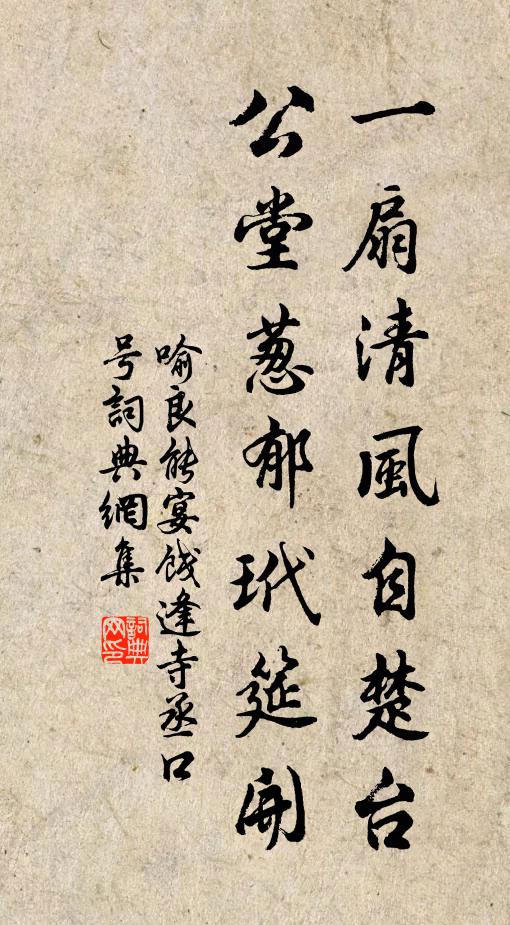 一扇清風自楚台
公堂葱郁玳筵開
喻良能宴餞逢寺丞口
号詞典網集
詞典網印